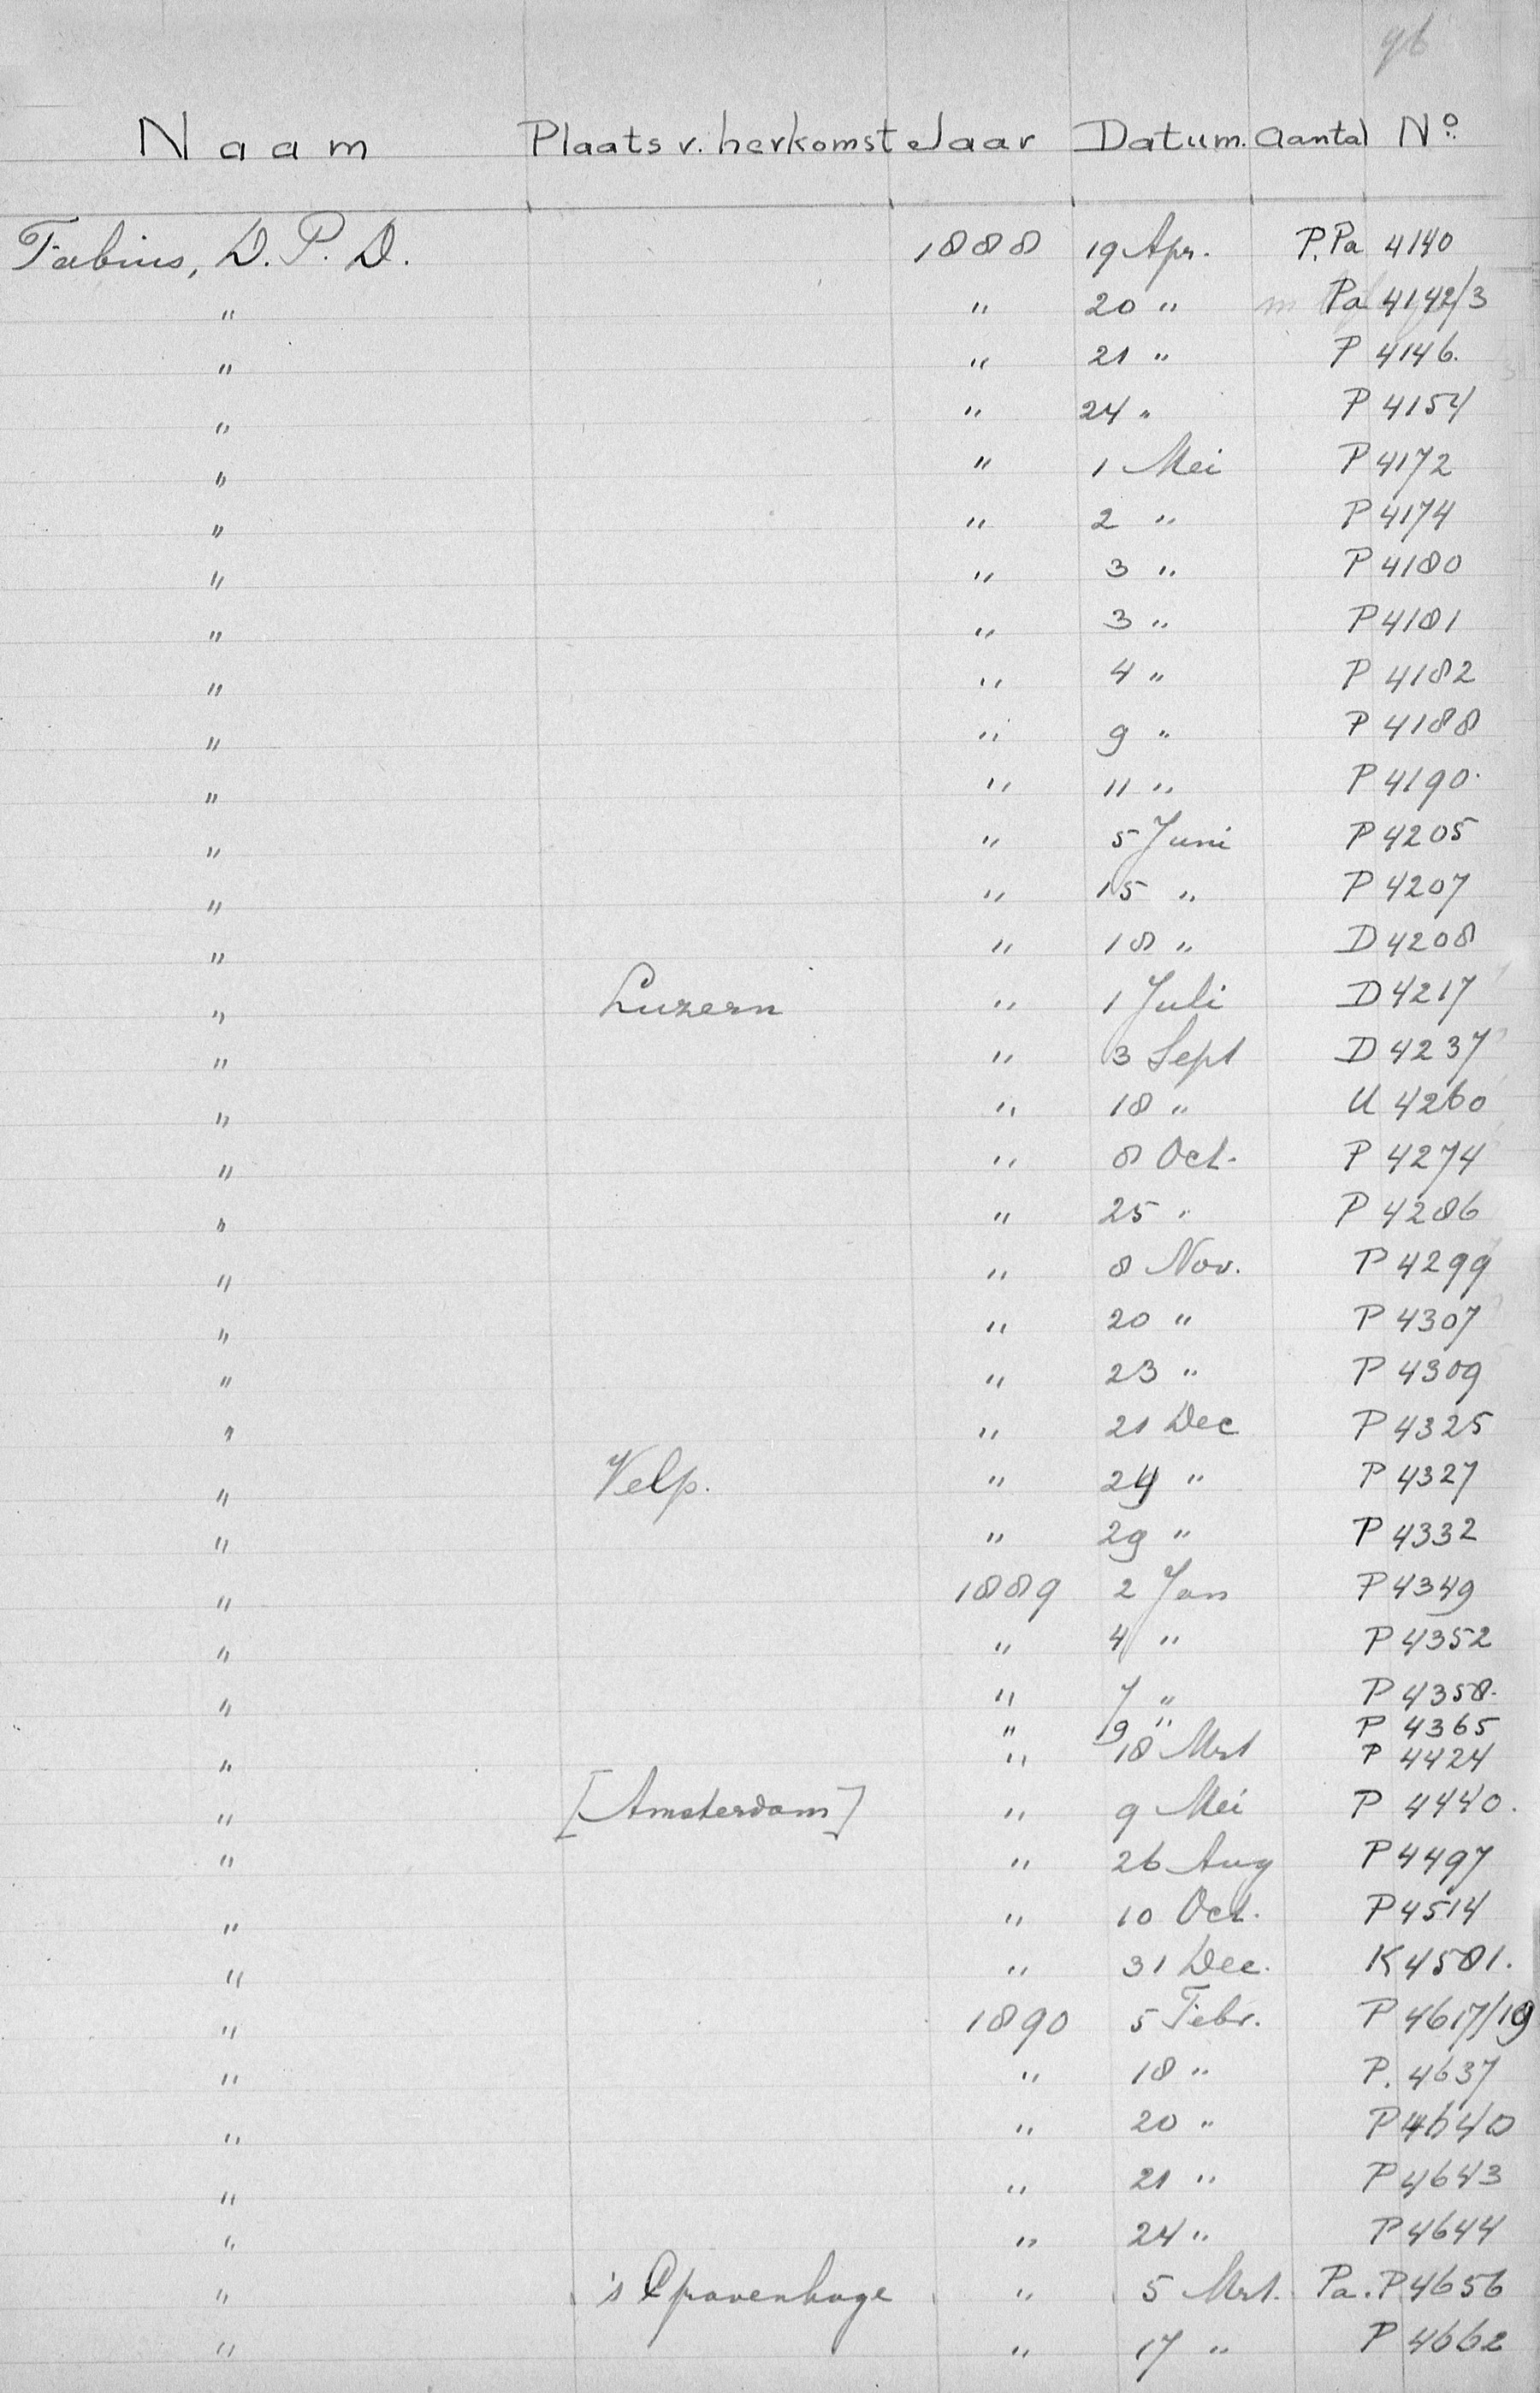 96
Naam Plaats v. herkomst Jaar Datum. aantal No.
Fabius, D. P. D. 1888 19 Apr. P. Pa 4140
" " 20 " Pa 4142/3
" " 21 " P 4146.
" " 24 " P 4154
" " 1 Mei P 4172
" " 2 " P 4174
" " 3 " P 4180
" " 3 " P 4181
" " 4 " P 4182
" " 9 " P 4188
" " 11 " P 4190.
" " 5 Juni P 4205
" " 15 " P 4207
" " 18 " D 4208
" Luzern " 1 Juli D 4217
" " 3 Sept D 4237
" " 18 " U 4260
" " 8 Oct. P 4274
" " 25 " P 4286
" " 8 Nov. P 4299
" " 20 " P 4307
" " 23 " P 4309
" " 21 Dec P 4325
" Velp. " 24 " P 4327
" " 29 " P 4332
" 1889 2 Jan P 4349
" " 4 " P 4352
" " 7 " P 4358.
" 9 " P 4365
" " 18 Mrt P 4424
" [Amsterdam] " 9 Mei P 4440.
" " 26 Aug P 4497
" " 10 Oct. P 4514
" " 31 Dec. K 4581.
" 1890 5 Febr. P 4617/19
" " 18 " P. 4637
" " 20 " P 4640
" " 21 " P 4643
" " 24 " P 4644
" 's Gravenhage " 5 Mrt. Pa. P 4656
" " 17 " P 4662